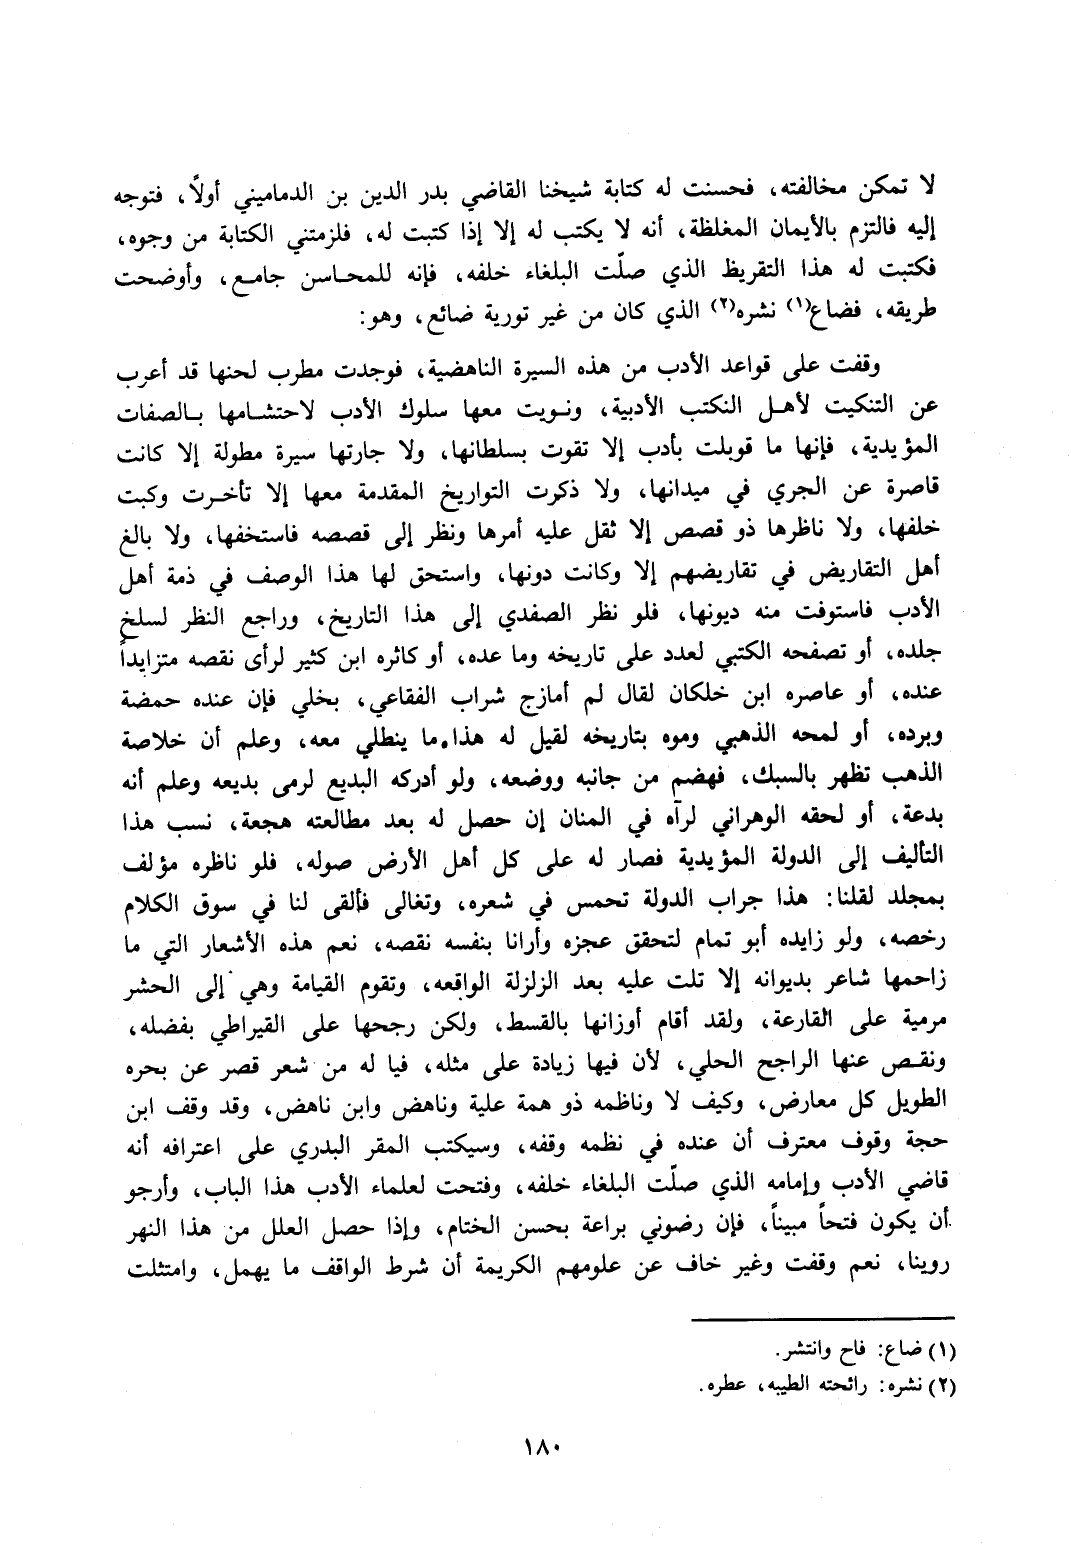 لا تمكن مخالفته، فحسنت له كتابة شيخنا القاضي بدر الدين بن الدماميني أولاً، فتوجه
إليه فالتزم بالأيمان المغلظة، أنه لا يكتب له إلا إذا كتبت له، فلزمتني الكتابة من وجوه،
فكتبت له هذا التقريظ الذي صلّت البلغاء خلفه، فإنه للمحاسن جامع، وأوضحت
طريقه، فضاع(١) نشره(٢) الذي كان من غير تورية ضائع، وهو:
وقفت على قواعد الأدب من هذه السيرة الناهضية، فوجدت مطرب لحنها قد أعرب
عن التنكيت لأهل النكتب الأدبية، ونويت معها سلوك الأدب لاحتشامها بالصفات
المؤيدية، فإنها ما قوبلت بأدب إلا تقوت بسلطانها، ولا جارتها سيرة مطولة إلا كانت
قاصرة عن الجري في ميدانها، ولا ذكرت التواريخ المقدمة معها إلا تأخرت وكبت
خلفها، ولا ناظرها ذو قصص إلا ثقل عليه أمرها ونظر إلى قصصه فاستخفها، ولا بالغ
أهل التقاريض في تقاريضهم إلا وكانت دونها، واستحق لها هذا الوصف في ذمة أهل
الأدب فاستوفت منه ديونها، فلو نظر الصفدي إلى هذا التاريخ، وراجع النظر لسلخ
جلده، أو تصفحه الكتبي لعدد على تاريخه وما عده، أو كاثره ابن كثير لرأى نقصه متزايداً
عنده، أو عاصره ابن خلكان لقال لم أمازج شراب الفقاعي، بخلي فإن عنده حمضة
وبرده، أو لمحه الذهبي وموه بتاريخه لقيل له هذا ما ينطلي معه، وعلم أن خلاصة
الذهب تظهر بالسبك، فهضم من جانبه ووضعه، ولو أدركه البديع لرمى بديعه وعلم أنه
بدعة، أو لحقه الوهراني لرآه في المنان إن حصل له بعد مطالعته هجعة، نسب هذا
التأليف إلى الدولة المؤيدية فصار له على كل أهل الأرض صوله، فلو ناظره مؤلف
بمجلد لقلنا: هذا جراب الدولة تحمس في شعره، وتغالى فألقى لنا في سوق الكلام
رخصه، ولو زايده أبو تمام لتحقق عجزه وأرانا بنفسه نقصه، نعم هذه الأشعار التي ما
زاحمها شاعر بديوانه إلا تلت عليه بعد الزلزلة الواقعه، وتقوم القيامة وهي إلى الحشر
مرمية على القارعة، ولقد أقام أوزانها بالقسط، ولكن رجحها على القيراطي بفضله،
ونقص عنها الراجح الحلي، لأن فيها زيادة على مثله، فيا له من شعر قصر عن بحره
الطويل كل معارض، وكيف لا وناظمه ذو همة علية وناهض وابن ناهض، وقد وقف ابن
حجة وقوف معترف أن عنده في نظمه وقفه، وسيكتب المقر البدري على اعترافه أنه
قاضي الأدب وإمامه الذي صلّت البلغاء خلفه، وفتحت لعلماء الأدب هذا الباب، وأرجو
أن يكون فتحاً مبيناً، فإن رضوني براعة بحسن الختام، وإذا حصل العلل من هذا النهر
روينا، نعم وقفت وغير خاف عن علومهم الكريمة أن شرط الواقف ما يهمل، وامتثلت
(١) ضاع: فاح وانتشر.
(٢) نشره: رائحته الطيبه، عطره.
١٨٠